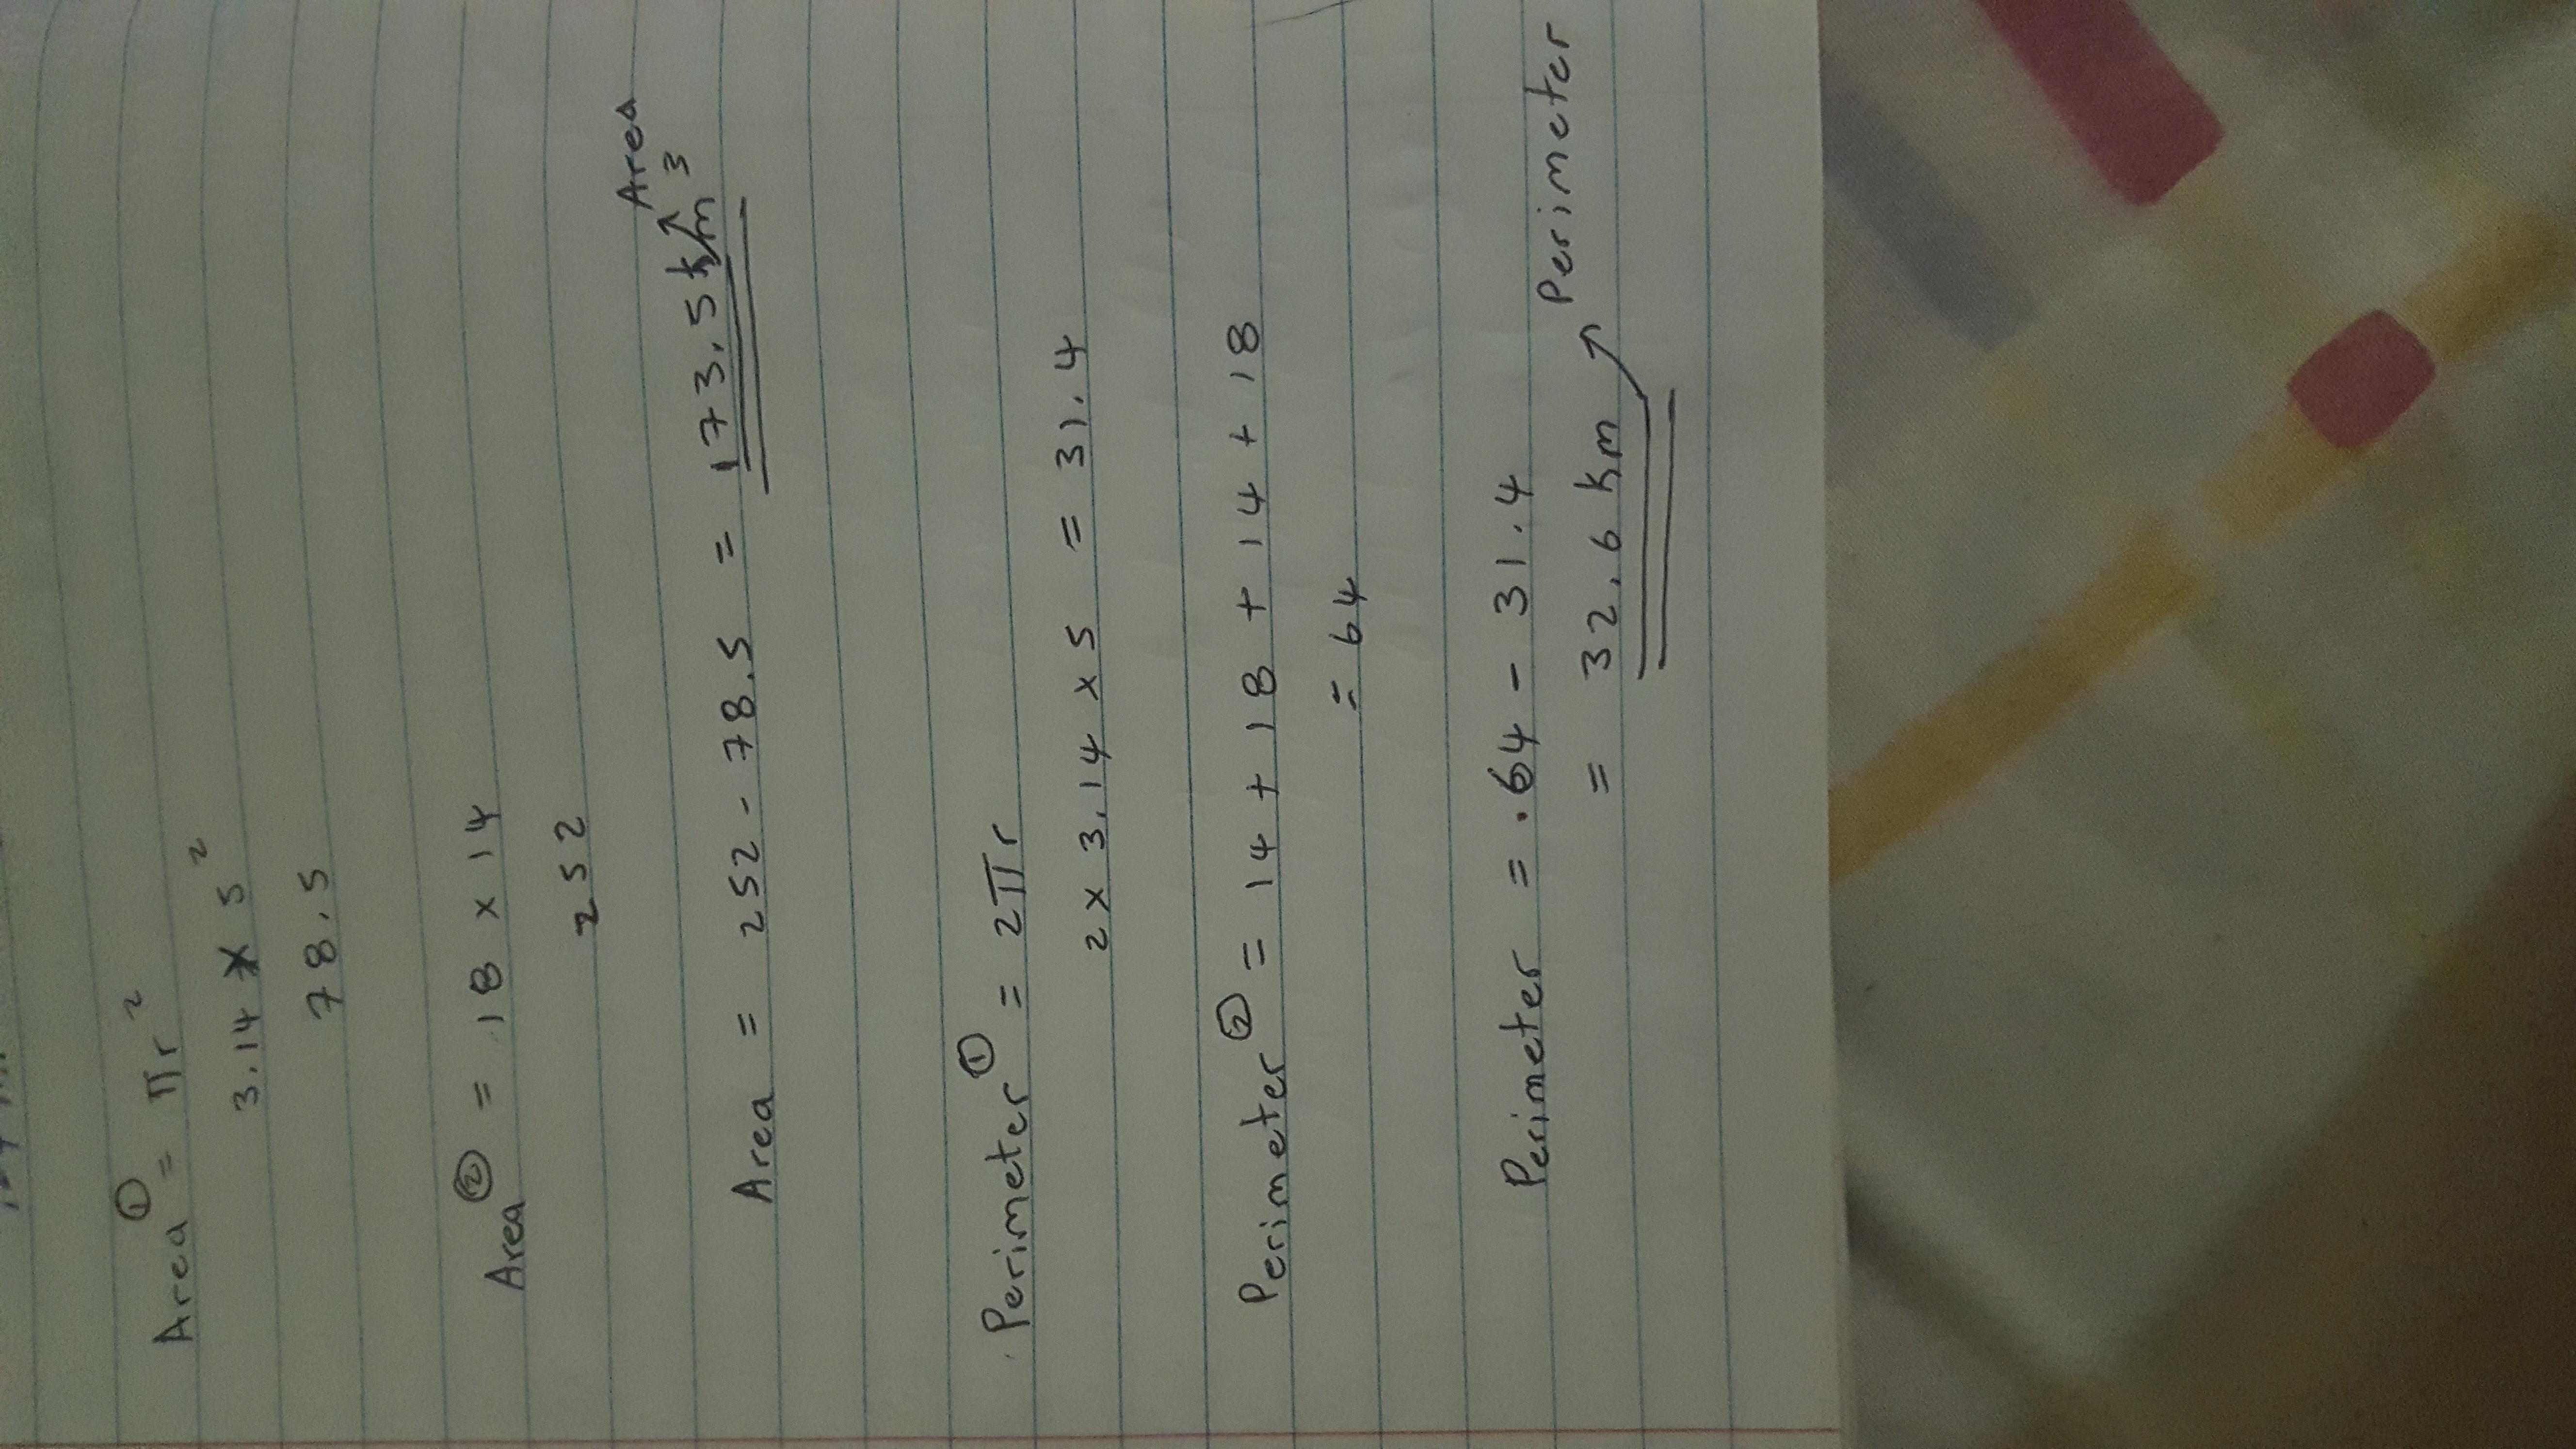 Area① = πr²
3.14 × 5²
78.5
Area② = 18 × 14
252
Area
Area = 252 - 78.5 = 173.5 km³
Perimeter① = 2πr
2 × 3.14 × 5 = 31.4
Perimeter② = 14 + 18 + 14 + 18
= 64
Perimeter = 64 - 31.4
= 32.6 km Perimeter